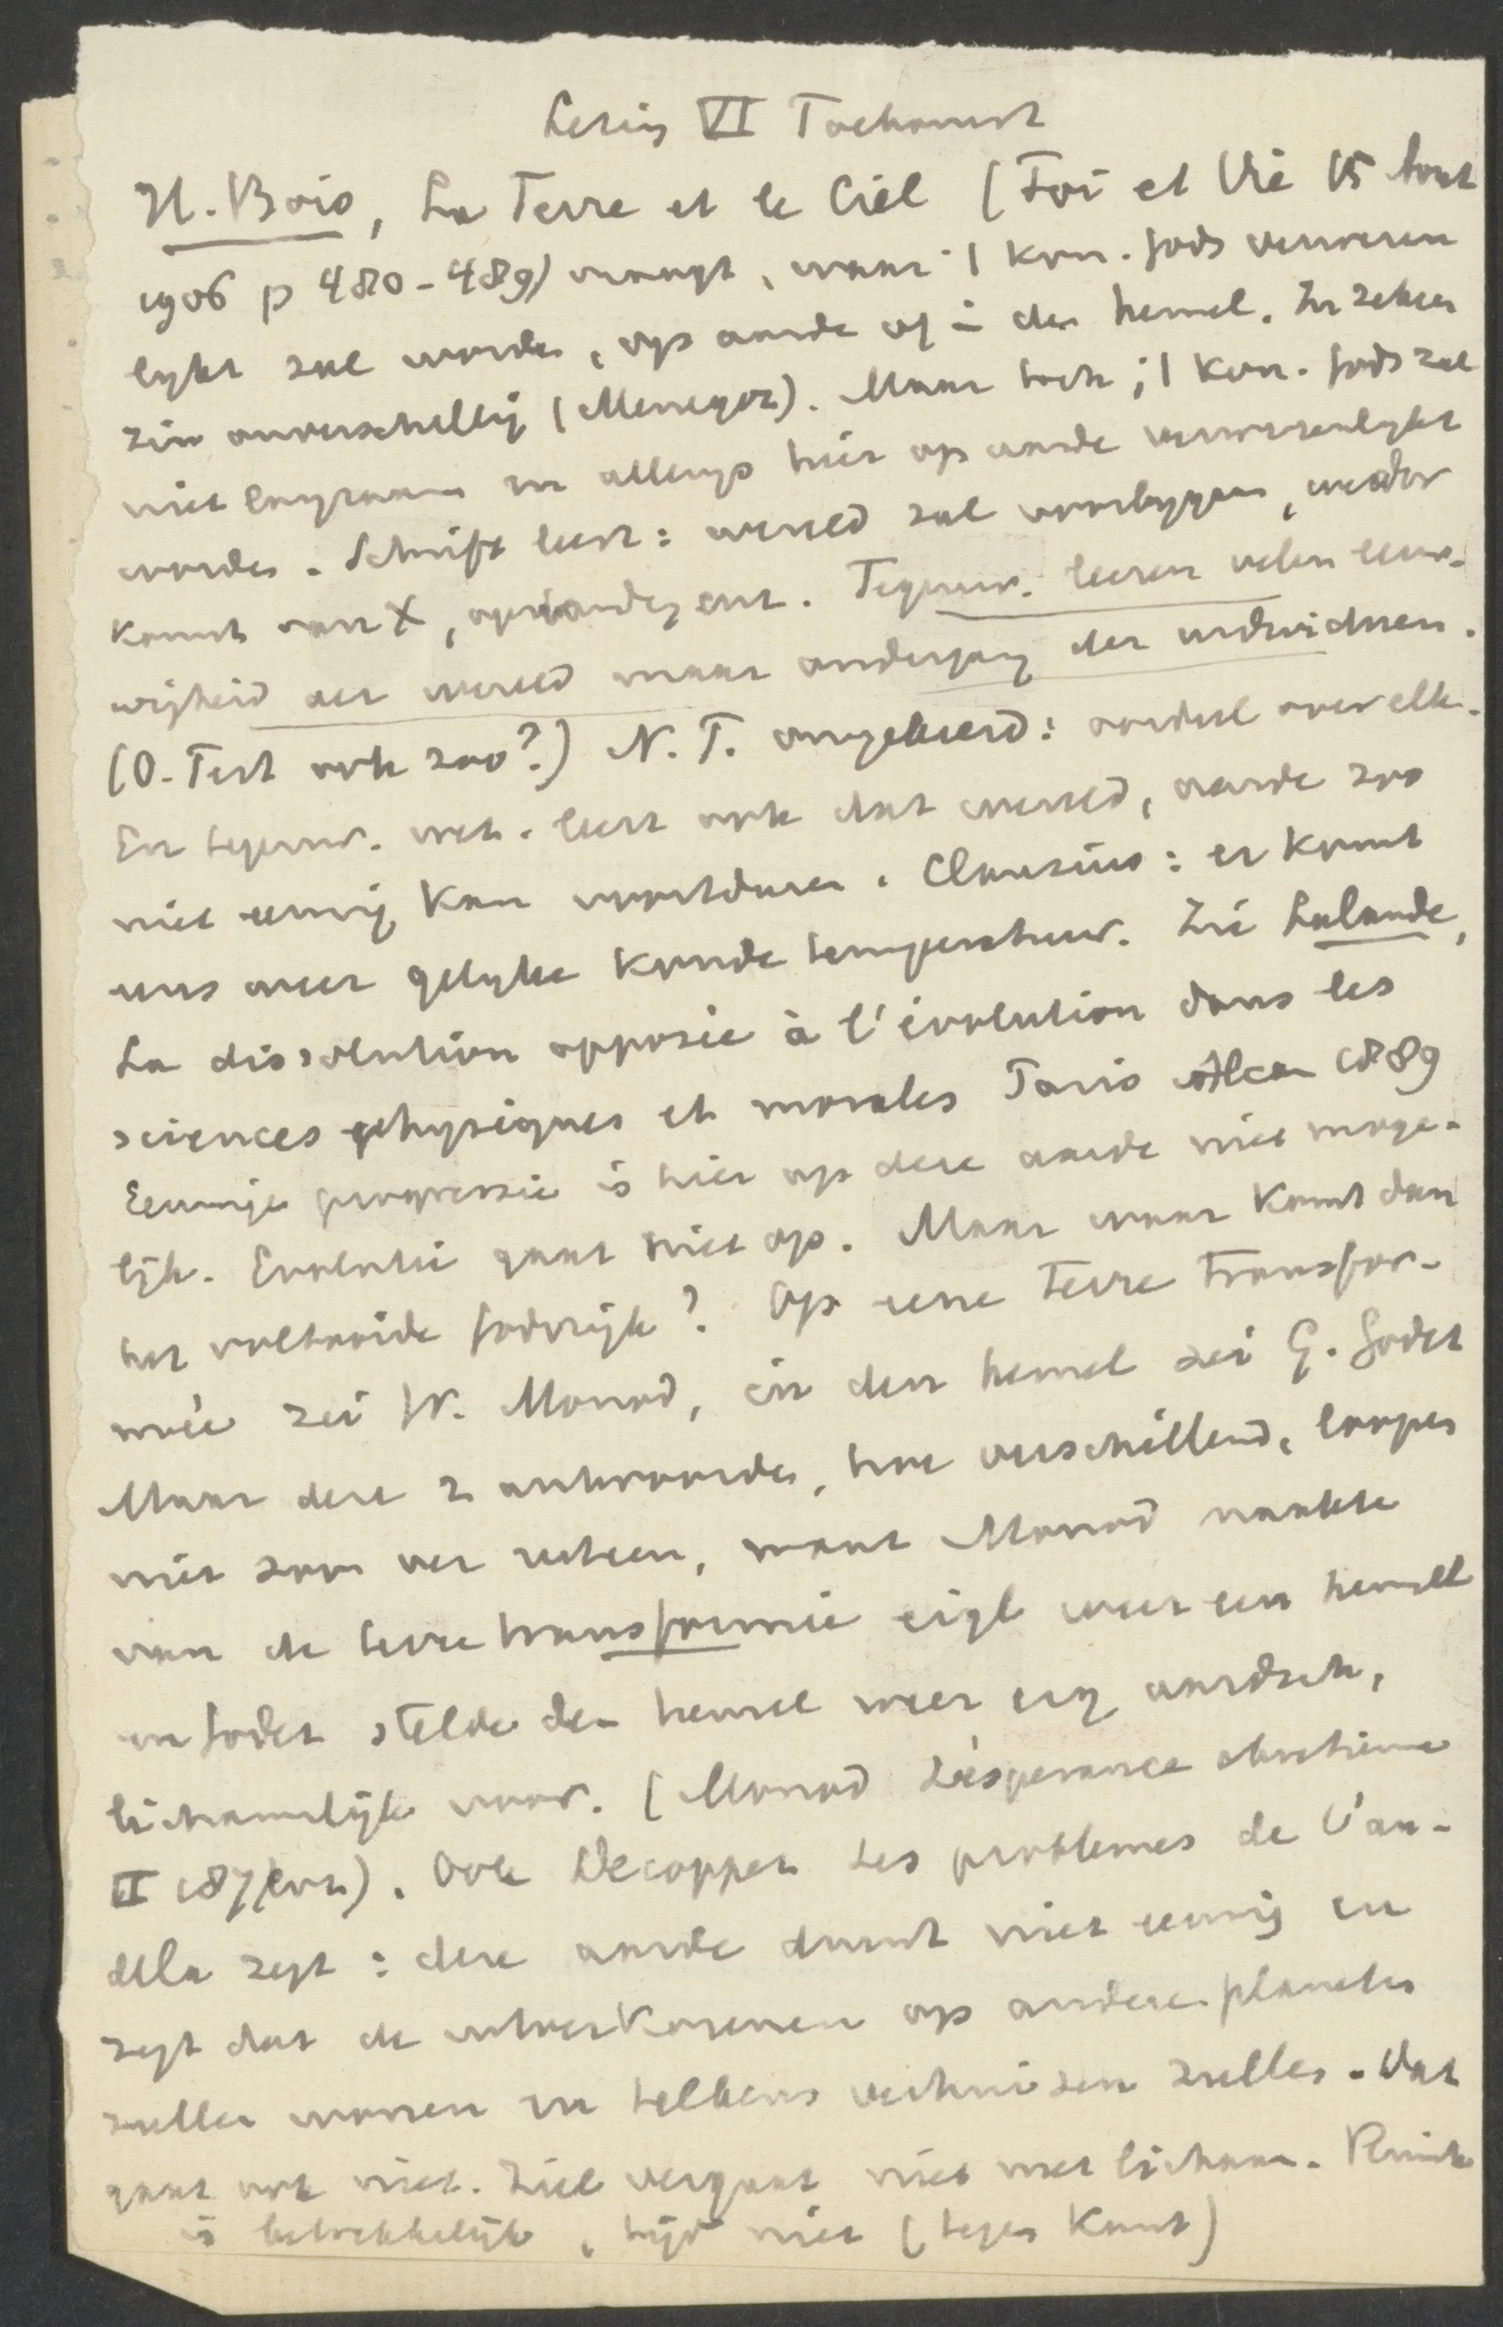 Lezing VI Toekomst
H. Bois, La Terre et le Ciel (Foi et Vie 15 Aout
1906 p 480-489) vraagt, waar 't kon. Gods verwezen
lykt zal worden, op aarde of in den hemel. In zeker
zin onverschillig (Menegoz). Maar toch; 't kon. Gods zal
niet langzaam en allengs hier op aarde verwezenlykt
worden. Schrift leert: wereld zal voorbygaan, weder
komst van X, opstanding enz. Tegenw. leeren velen eeuw-
wigheid der wereld maar ondergang der individuen.
(O. Test ook zoo?) N. T. omgekeerd: oordeel over elk.
En tegenw. wet. leert ook dat wereld, aarde zoo
niet eeuwig kan voortduren. Clausius: er komt
eens weer gelyke koude temperatuur. Zie Lalande,
La dissolution opposée à l'évolution dans les
sciences physiques et morales Paris Alcan 1889
Eeuwige progressie is hier op deze aarde niet moge-
lijk. Evolutie gaat niet op. Maar waar komt dan
het voltooide Godsrijk? Op eene Terre Transfor-
mée zei W. Monod, in den hemel zei G. Godet
Maar deze 2 antwoorden, hoe verschillend, loopen
niet zoo ver uiteen, want Monod maakte
van de terre transformée eigl weer een hemel
en Godet stelde den hemel weer erg aardsch,
lichamelijk voor. (Monod L'ésperance chretienne
II 187 env). Ook Decoppet Les problemes de l'au-
dela zegt: deze aarde duurt niet eeuwig en
zegt dat de uitverkorenen op andere planeten
zullen wonen en telkens verhuizen zullen. Dat
gaat ook niet. Ziel vergaat niet met lichaam. Ruimte
is betrekkelijk, tijd niet (tegen Kant)